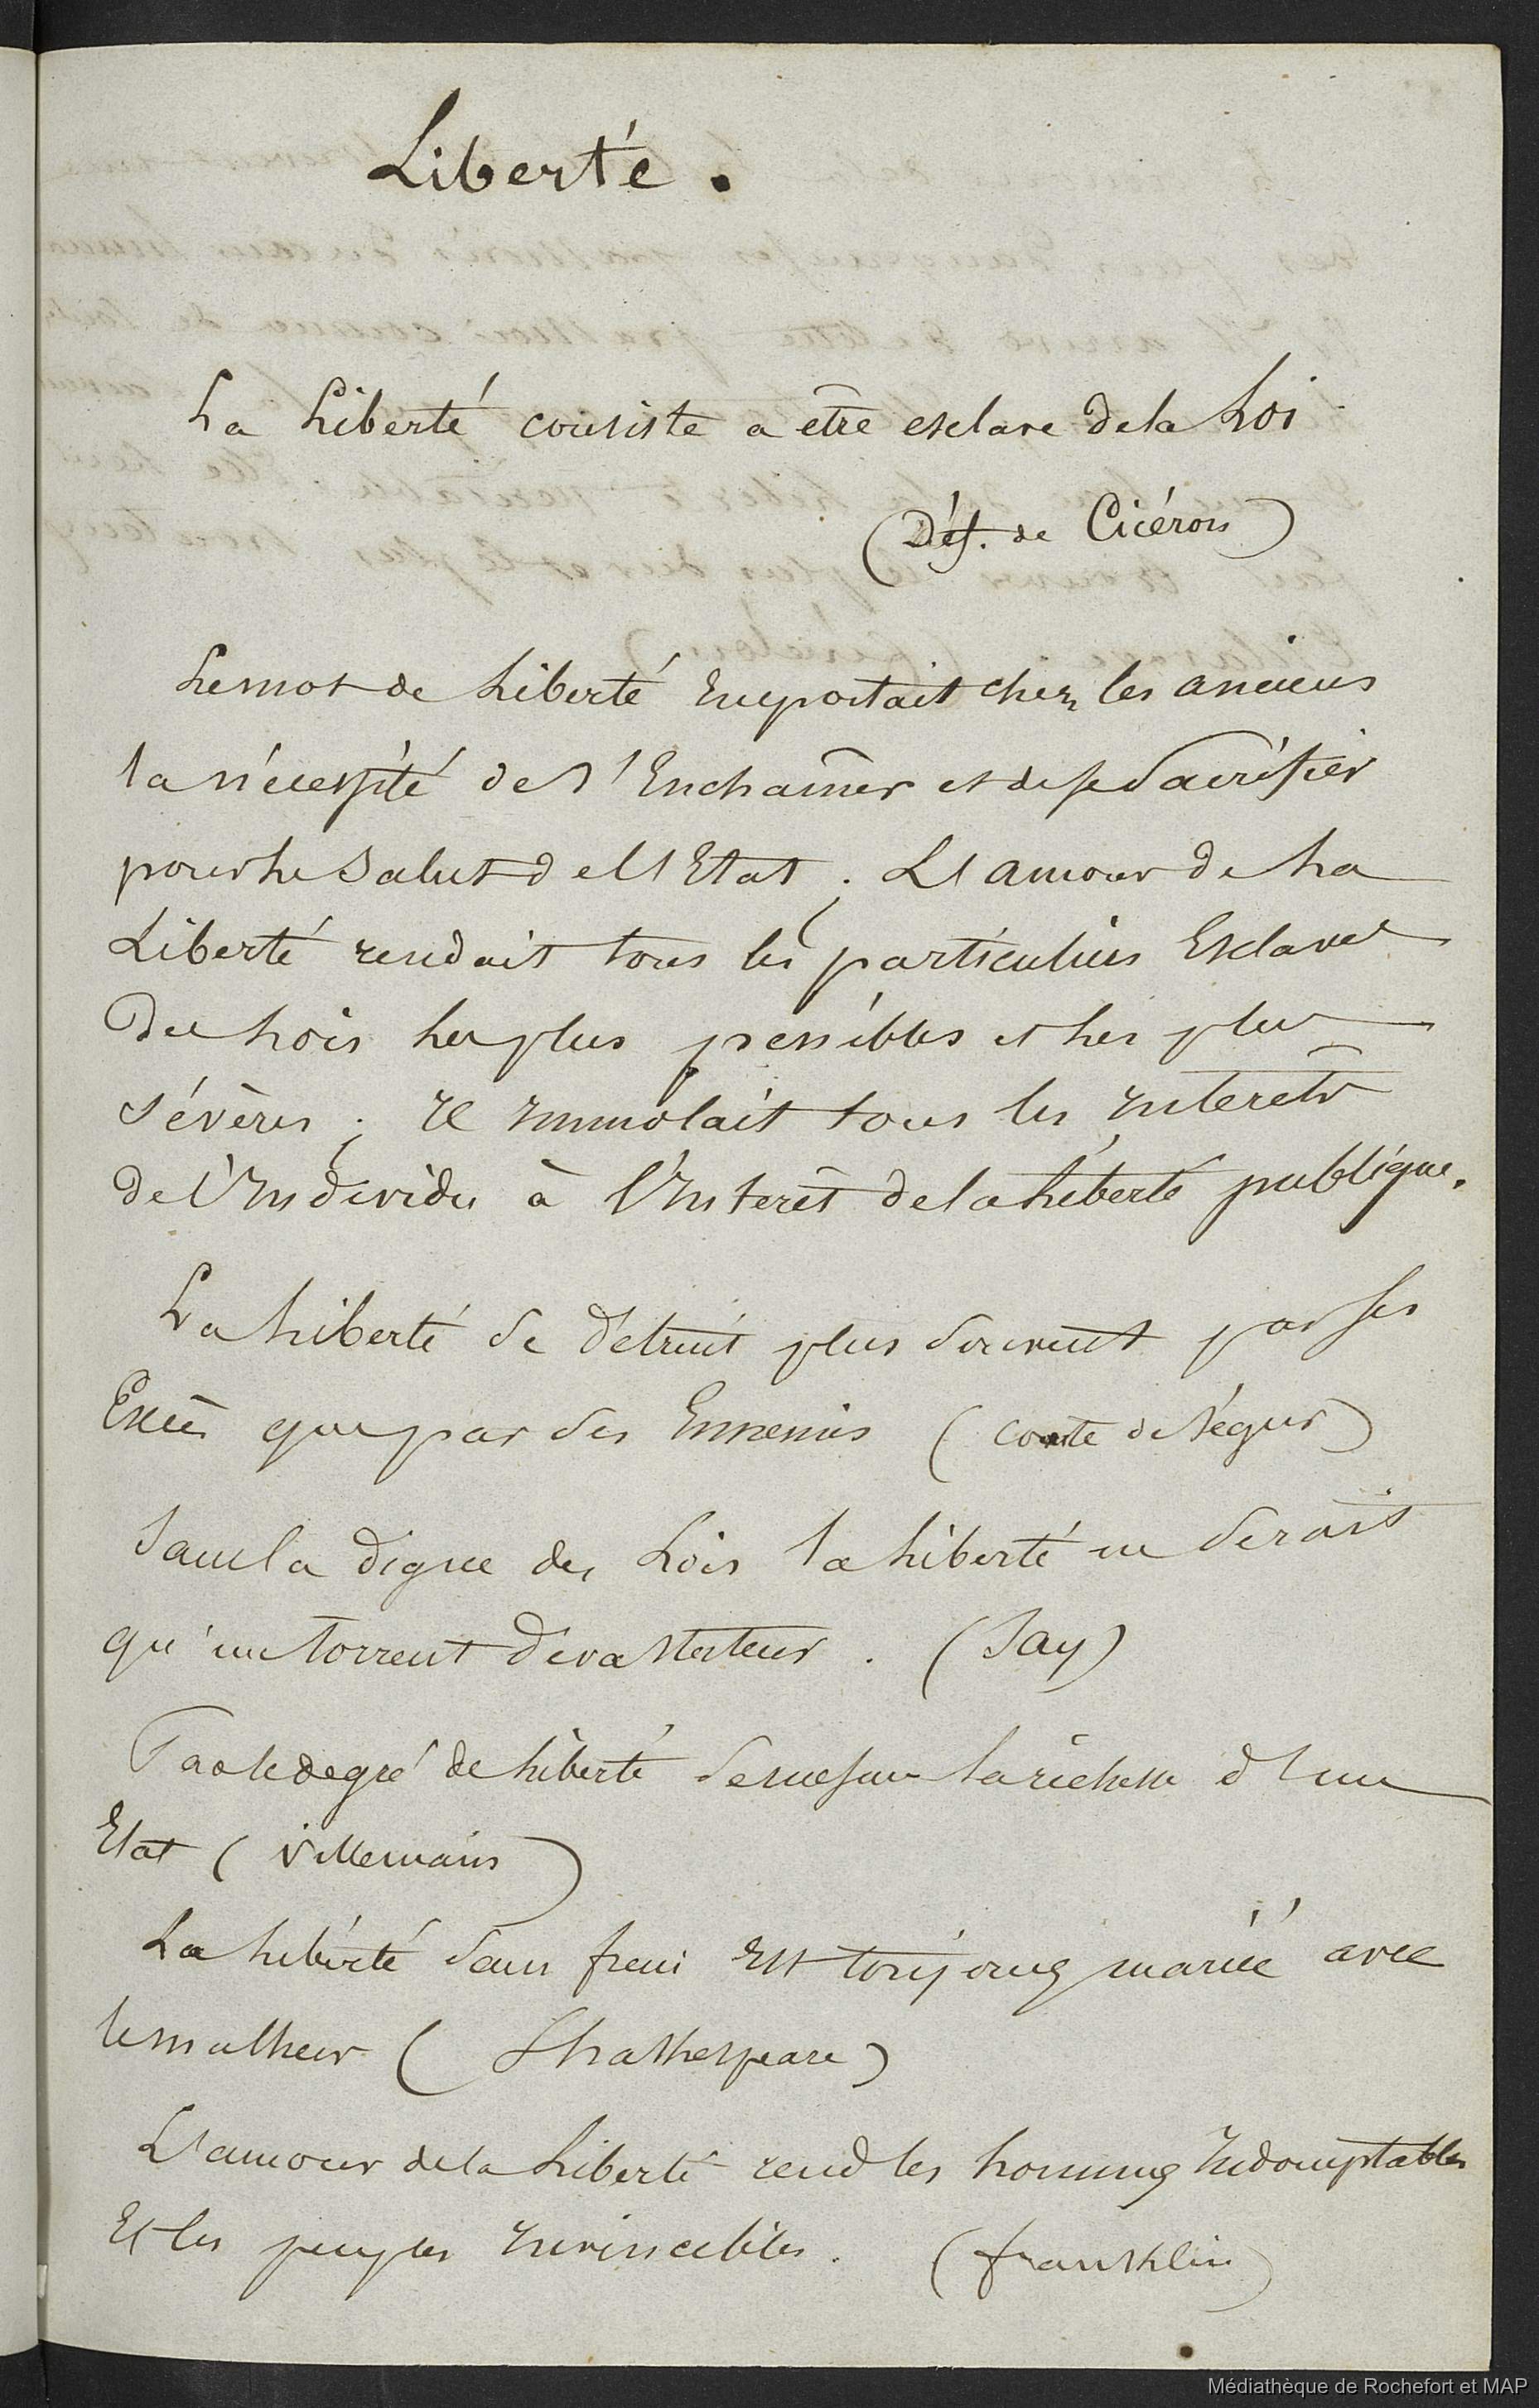 Liberté.
La Liberté consiste a être esclave de la Loi
(Déf. de Cicéron)
Le mot de Liberté Emportait chez les anciens
la nécessité de s'Enchaîner et de se Sacrifier
pour le Salut de l'Etat ; L'amour de La
Liberté rendait tous les particuliers Esclaves
des Lois les plus penibles et les plus
sévères ; Il Immolait tous les Interêts
de l'Individu à l'Interêt de la Liberté publique.
La Liberté se Détruit plus souvent par ses
Excès que par ses Ennemis (comte de Ségur)
Sans la digue des Lois la Liberté ne serait
qu'un torrent dévastateur. (Say)
Par le degré de Liberté se mesure la richesse d'un
Etat (Villemain)
La Liberté sans frein Est toujours mariée avec
le malheur (Shakespeare)
L'amour de la Liberté rend les hommes Indomptables
Et les peuples Invincibles. (franklin)
Médiathèque de Rochefort et MAP